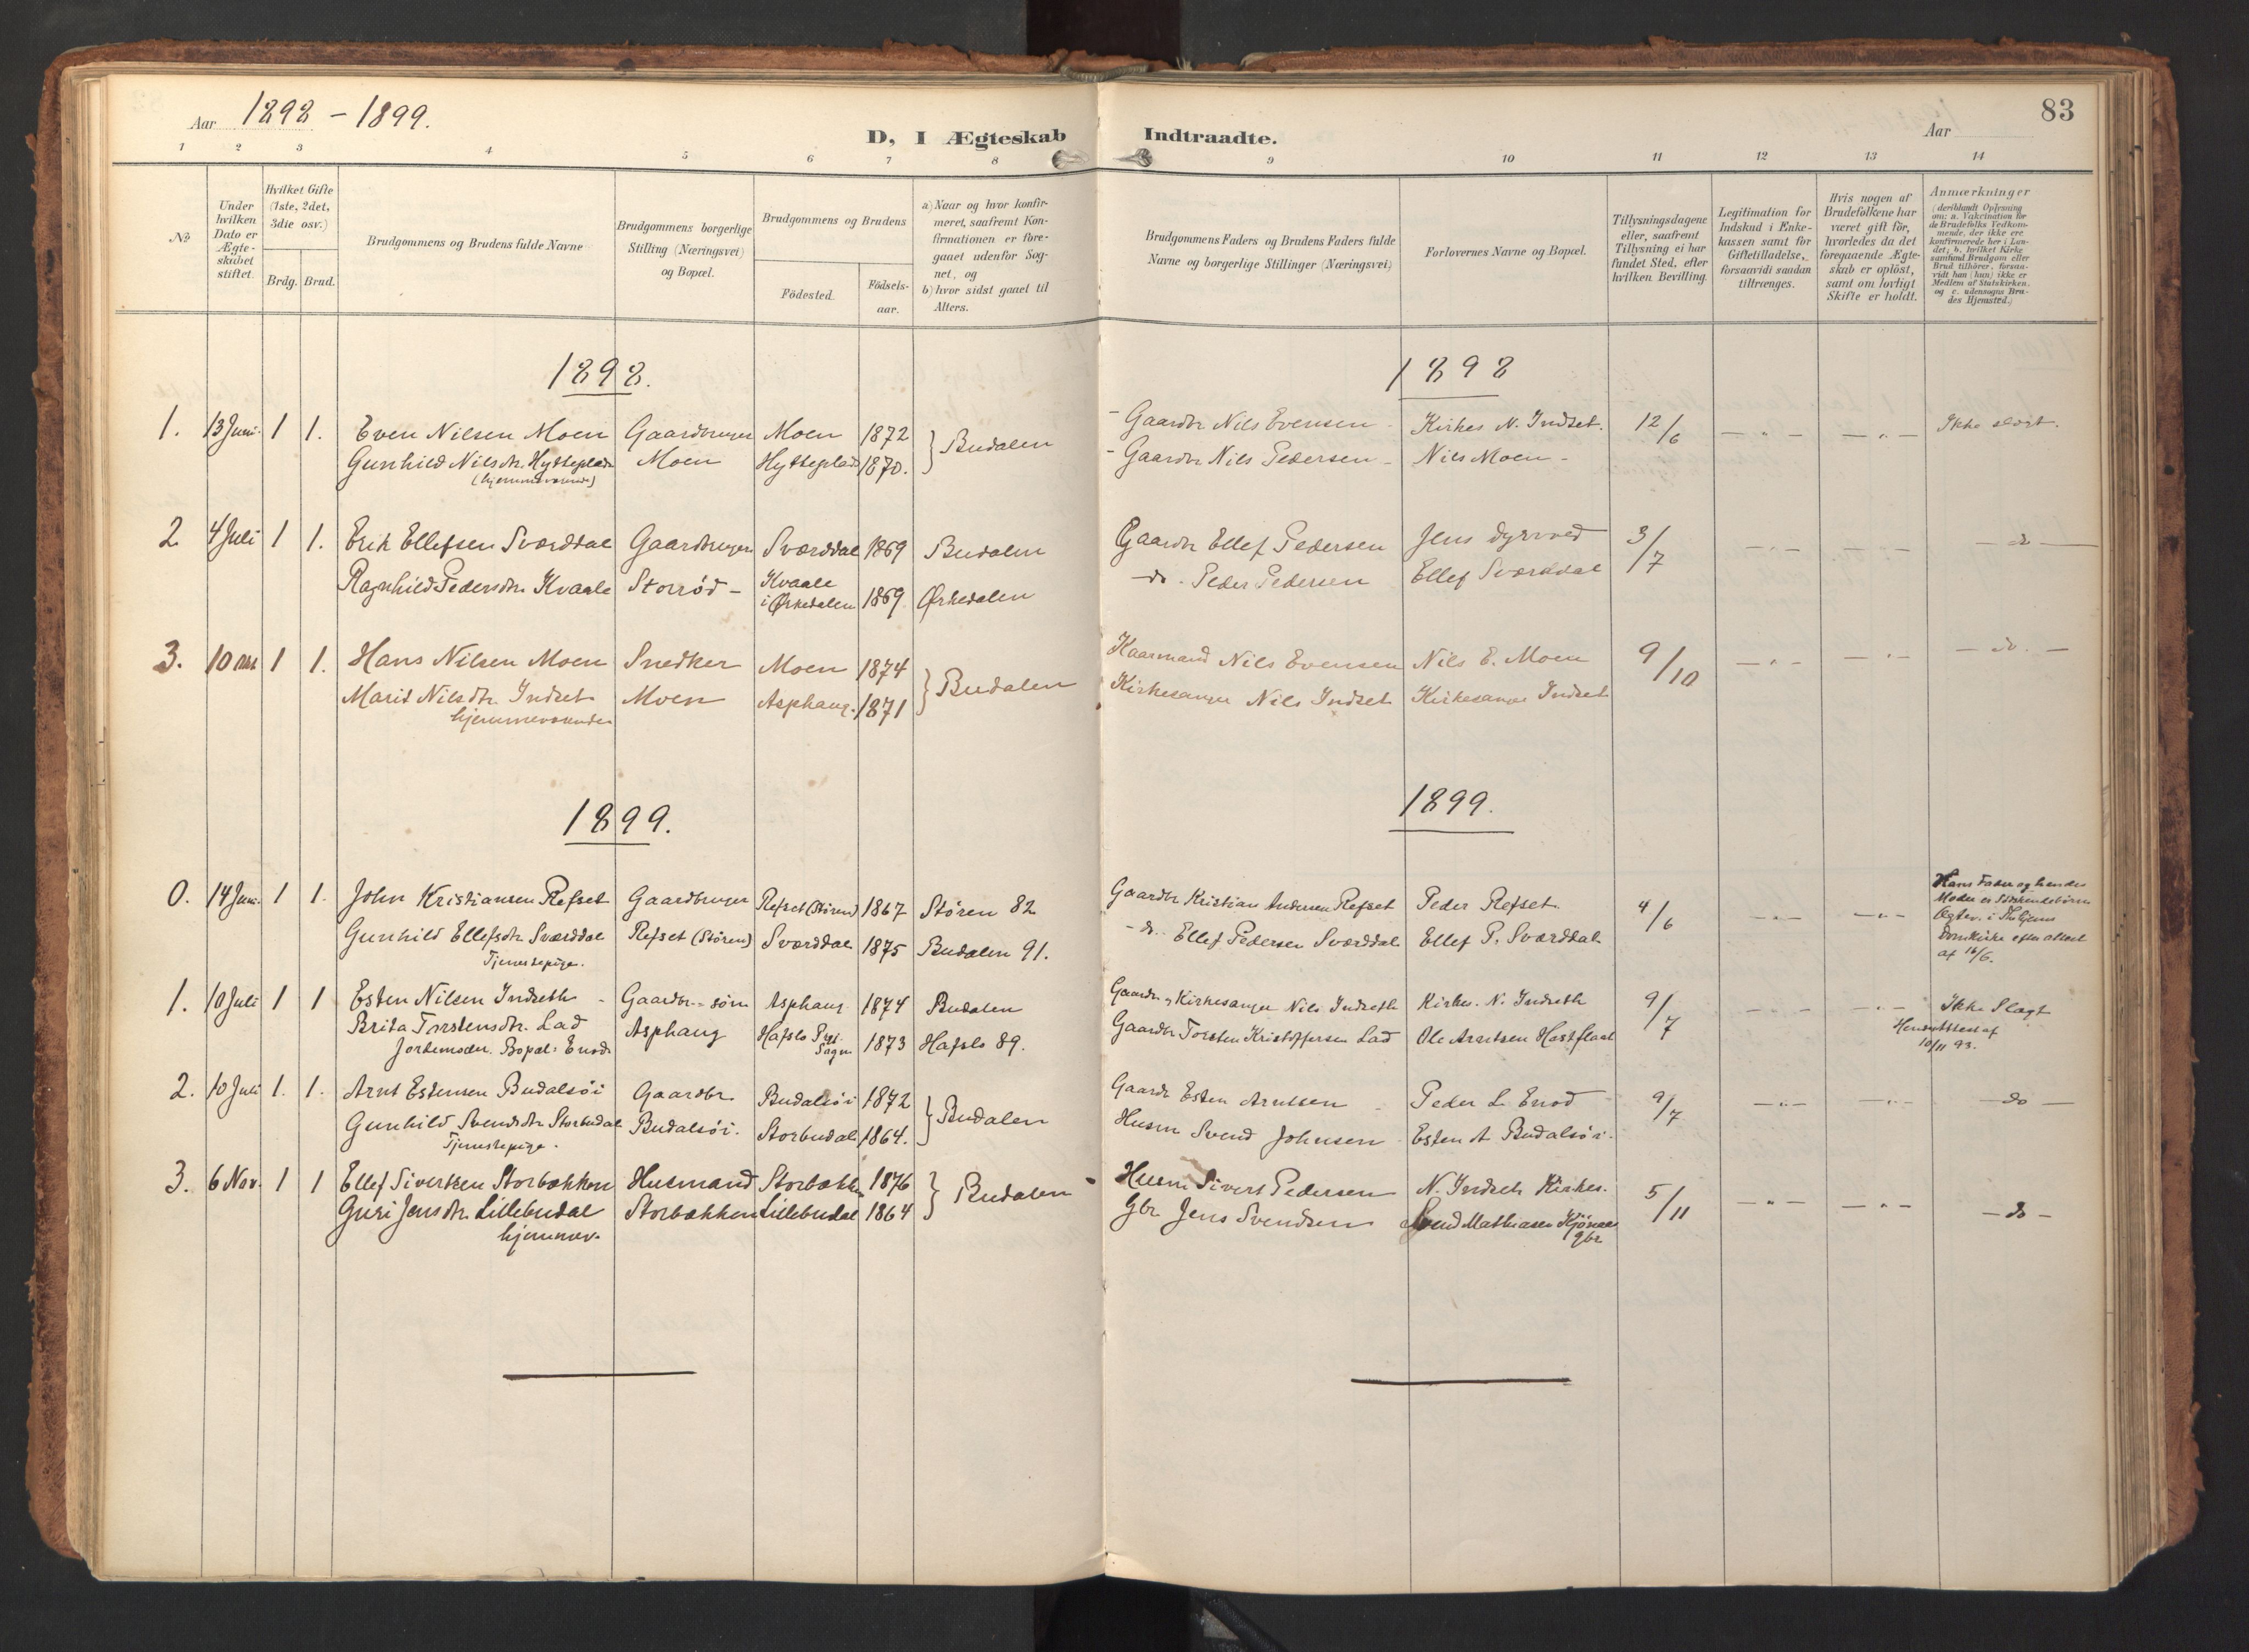 Aar 1898 - 1899.
D, I Ægteskab Indtraadte.
Aar
83
1 2 3 4 5 6 7 8 9 10 11 12 13 14
No
Under hvilken Dato er Ægteskabet stiftet.
Hvilket Gifte (1ste, 2det, 3die osv.)
Brdg. Brud.
Brudgommens og Brudens fulde Navne
Brudgommens borgerlige Stilling (Næringsvei) og Bopæl.
Brudgommens og Brudens
Födested.
Födselsaar.
a) Naar og hvor konfirmeret, saafremt Konfirmationen er foregaaet udenfor Sognet, og
b) hvor sidst gaaet til Alters.
Brudgommens Faders og Brudens Faders fulde Navne og borgerlige Stillinger (Næringsvei)
Forlovernes Navne og Bopæl.
Tillysningsdagene eller, saafremt Tillysning ei har fundet Sted, efter hvilken Bevilling.
Legitimation for Indskud i Enkekassen samt for Giftetilladelse, forsaavidt saadan tiltrænges.
Hvis nogen af Brudefolkene har været gift för, hvorledes da det foregaaende Ægteskab er oplöst, samt om lovligt Skifte er holdt.
Anmærkninger (deriblandt Oplysning om: a. Vakcination for de Brudefolks Vedkommende, der ikke ere konfirmerede her i Landet; b. hvilket Kirkesamfund Brudgom eller Brud tilhörer, forsaavidt han (hun) ikke er Medlem af Statskirken. og c. udensogns Brudes Hjemsted.)
1898. 1898
1. 13 Juni. 1 1. Even Nilsen Moen Gaardbruger Moen 1872 } Budalen - Gaardbr Nils Evensen - Kirkes N. Indset. 12/6 Ikke slægt.
Gunhild Nilsdtr. Hytteplads Moen Hytteplads 1870. - Gaardbr Nils Pedersen - Nils Moen -
(hjemmeværende)
2 4 Juli 1 1. Erik Ellefsen Sværddal Gaardbruger Sværddal 1869 Budalen Gaardbr Ellef Pedersen Jens Dyrrød 3/7 - do -
Ragnhild Pedersdtr. Kvaale Storrød - Kvaale i Ørkedalen 1869. Ørkedalen - do. Peder Pedersen Ellef Sværddal
3. 10 1 1. Hans Nilsen Moen Snedker Moen 1874 } Budalen Kaarmand Nils Evensen Nils E. Moen 9/10 - do. -
Marit Nilsdtr. Indset Moen Asphaug. 1871 Kirkesanger Nils Indset Kirkesanger Indset
hjemmeværende
1899. 1899.
0. 14 Juni. 1 1. John Kristiansen Refset Gaardbruger Refset (Stören) 1867 Støren 82 Gaardbr Kristian Andersen Refset Peder Refset. 4/6 Hans Fader og hendes
Moder er Södskendebörn
Ægtev. i Thhjems
Domkirke efter attest
af 16/6.
Gunhild Ellefsdtr Sværddal Refset (Stören) Sværddal 1875 Budalen 91. - do. Ellef Pedersen Sværddal Ellef P. Sværddal
Tjenestepige.
1. 10 Juli 1 1 Esten Nilsen Indseth - Gaardbr.=søn Asphaug 1874 Budalen Gaardbr. & Kirkesanger Nils Indseth Kirkes. N. Indseth 9/7 Ikke Slægt
Brita Torstensdtr. Lad Asphaug Hafslo 1873 Hafslo 89. Gaardbr Torsten Kristoffersen Lad Ole Arntsen
10/11 93.
Jordemoder. Bopæl: Enod.
2. 10 Juli 1. 1. Arnt Estensen Budalsöi Gaardbr. Budalsöi 1872 } Budalen Gaardbr Esten Arntsen - Peder L. Enod 9/7 - do -
Gunhild Svendsdtr Storbudal Budalsöi. Storbudal 1864. Husm Svend Johnsen - Esten A Budalsöi.
Tjenestepige.
3. 6 Nov. 1 1 Ellef Sivertsen Storbækken Husmand Storbækken 1876 } Budalen Husm Sivert Pedersen N. Indseth Kirkes. 5/11 - do -
Guri Jensdtr. Lillebudal Storbækken Lillebudal 1864 Gbr Jens Svendsen Svend Mathiasen Kjönaas
gbr
hjemmev.